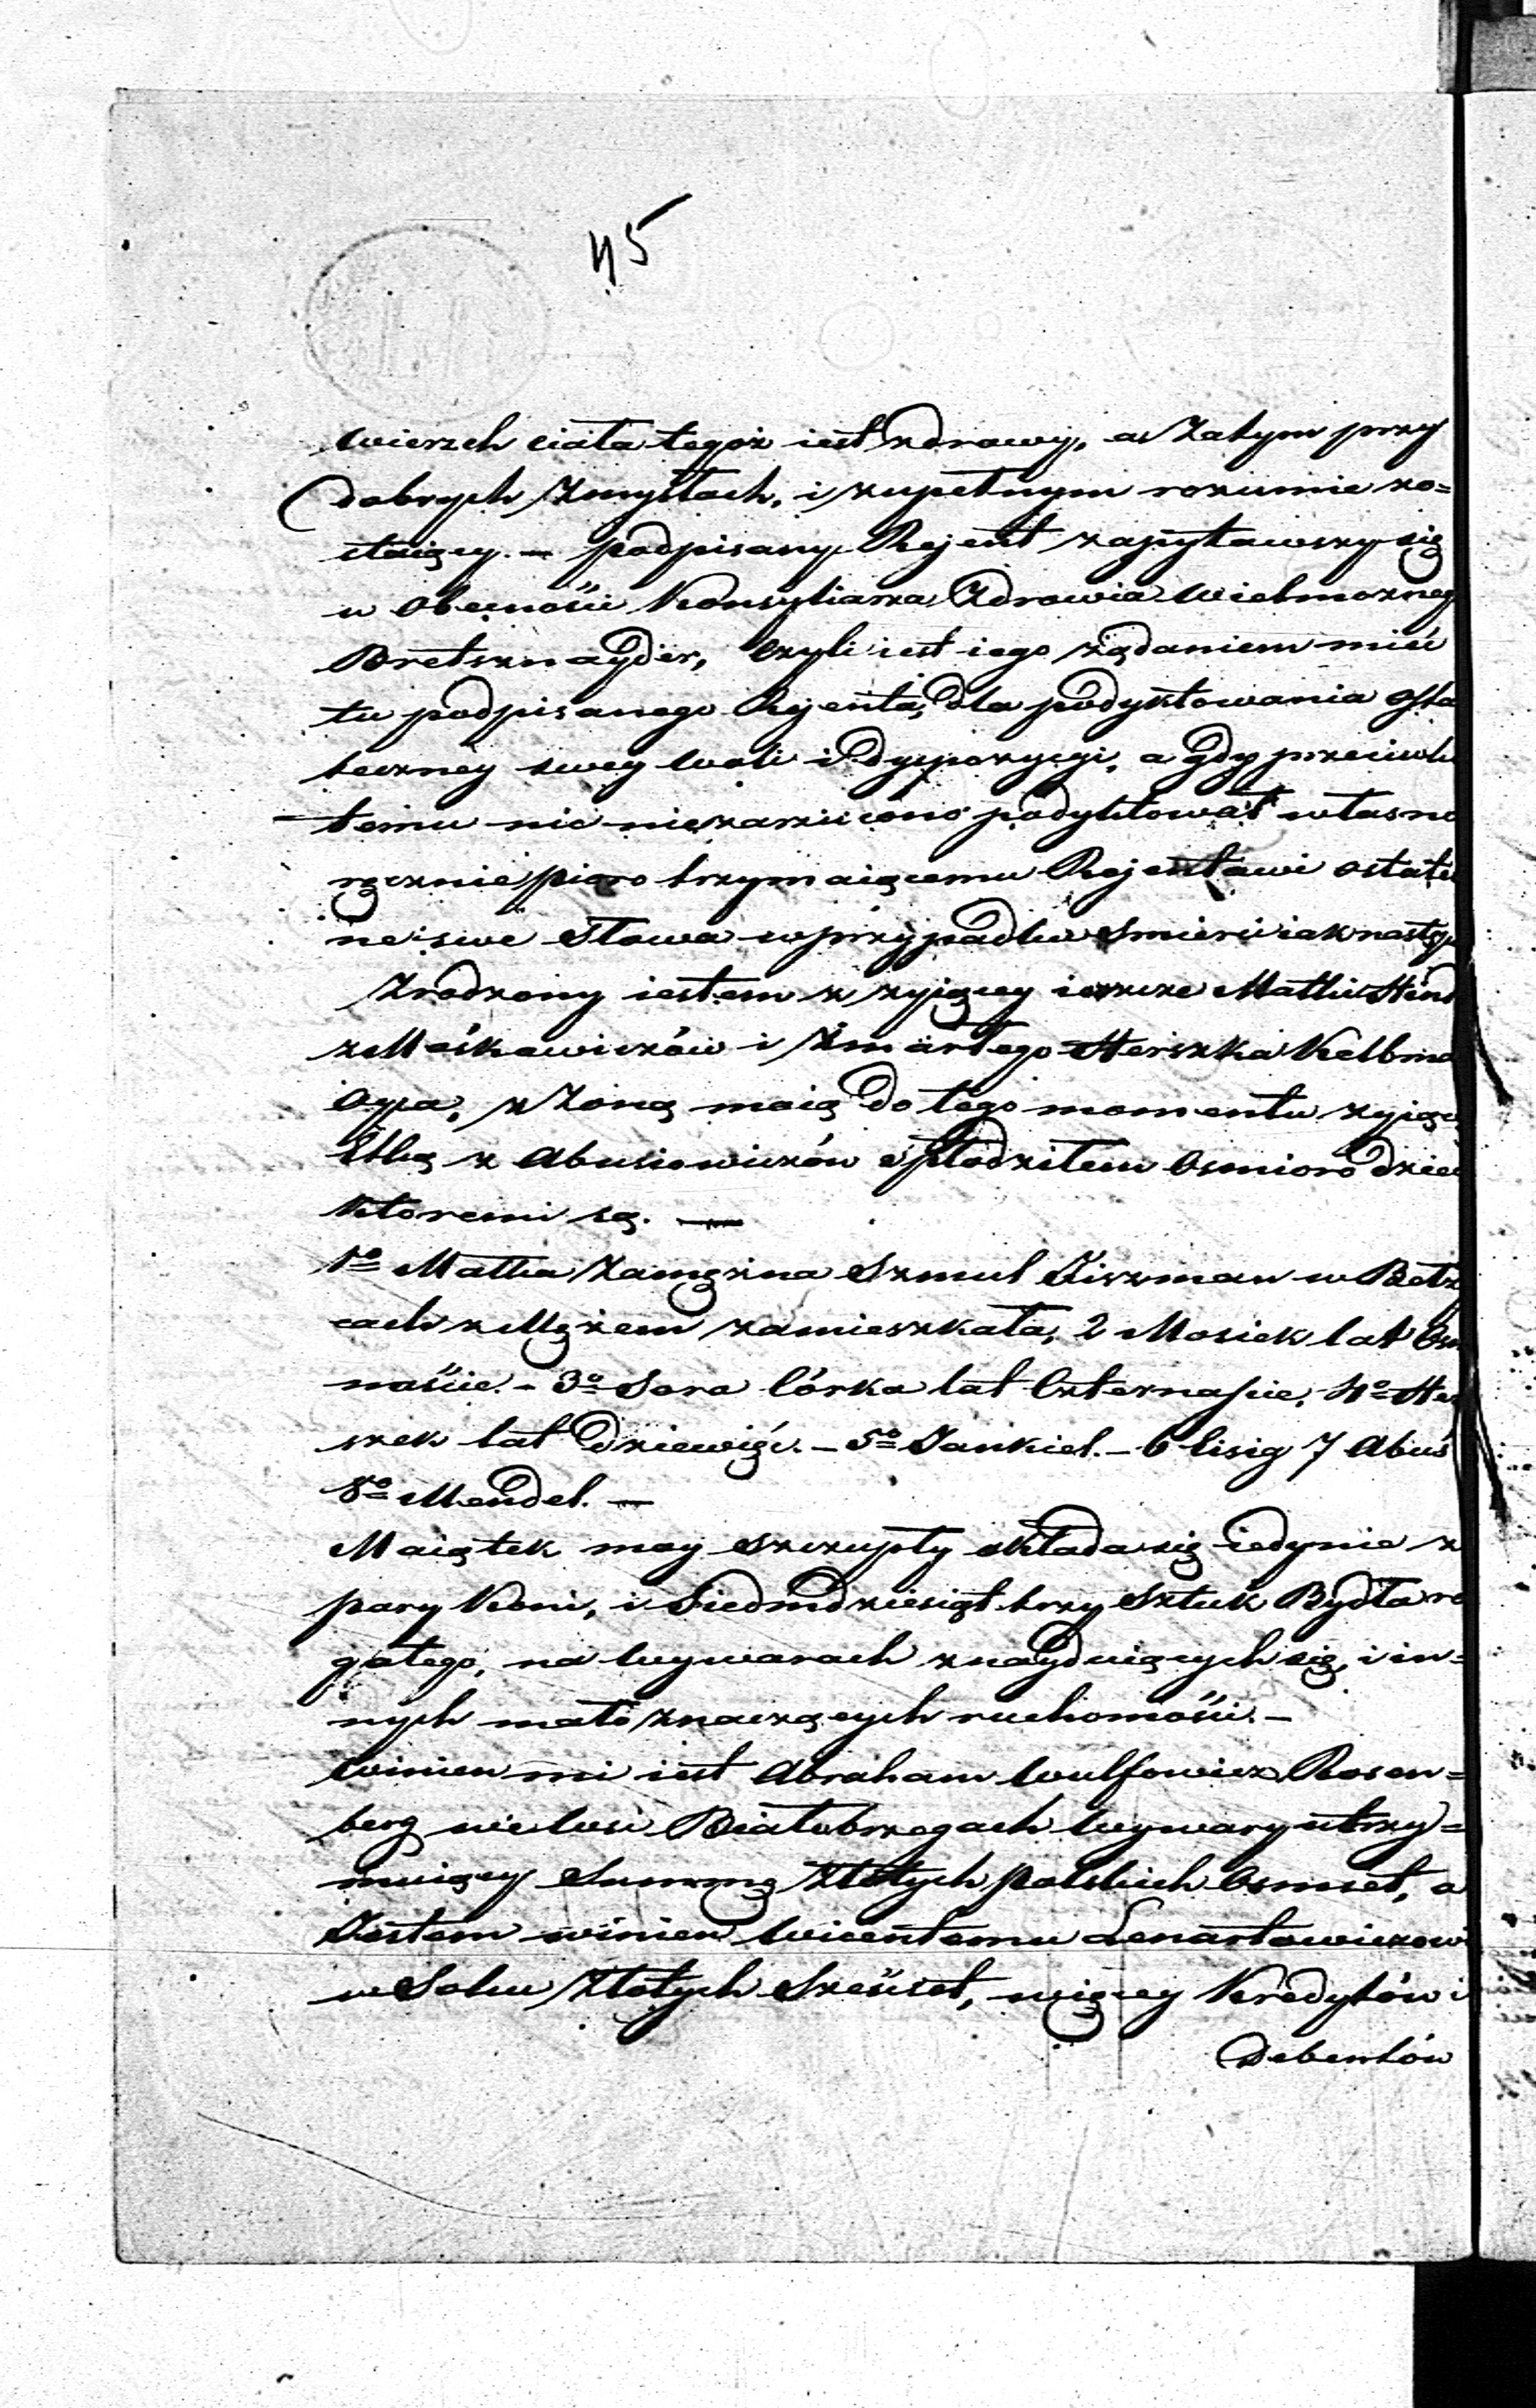 45
wierzch ciała tegoż iest zdrowy, a Zatym przy
dobrych Zmysłach, i zupełnym rozumie zo=
staiący. — podpisany Rejent zapytawszy się
w obecności Konsyliarza Zdrowia Wielmożneg
Bretsznayder, Czyli iest iego żądaniem mieć
tu podpisanego Rejenta, dla podyktowania osta
teczney swey woli i Dyspozycyi, a gdy przeciwko
temu nic niezarzucono podyktował własno
ręcznie pioro trzymaiącemu Rejentowi ostatn
ne swe Słowa w przypadku Smierci iak następ
Zrodzony iestem z żyiącey ieszcze Matki Hend
z Moskowiczów i Zmarłego Herszka
Oyca, z Zoną moią do tego momentu żyiącą
z Abusiowiczów spłodziłem Osmioro dziec
Ktoremi są. —
1o Matka Zamężna Szmul Fiszman w
cach z Mężem zamieszkała, 2 Mosiek lat Osm
naście. – 3o Sora Córka lat Czternaście, 4o Her
szek lat Dziewięć. – 5o Jankiel. – 6 7 Abuś
8o Mendel. —
Maiątek moy szczupły składa się iedynie z
pary Koni, i Siedmdziesiąt trzy Sztuk Bydła ro
gatego, na wywarach znayduiących się, i in=
nych mało znaczących ruchomości. –
Winien mi iest Abraham Wulfowicz Rosen=
berg we Wsi Białobrzegach wywary utrzy=
muiący Summę Złotych polskich Osmset, a
Jestem winien Wicentemu Lenartowiczowi
w Solcu Złotych Sześćset, więcey Kredytów i
Debentów